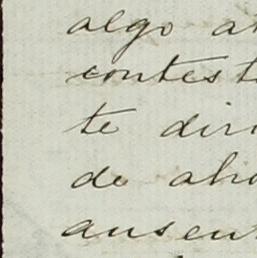 algo a
contest
te diri
de aho
ausen